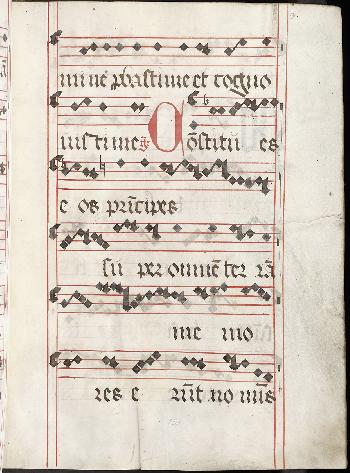 mine ꝓbastime et cogno
uistime ℟. Constitu es
e os prīcipes
su per omnē ter rā
me mo
res e rūt no mīs